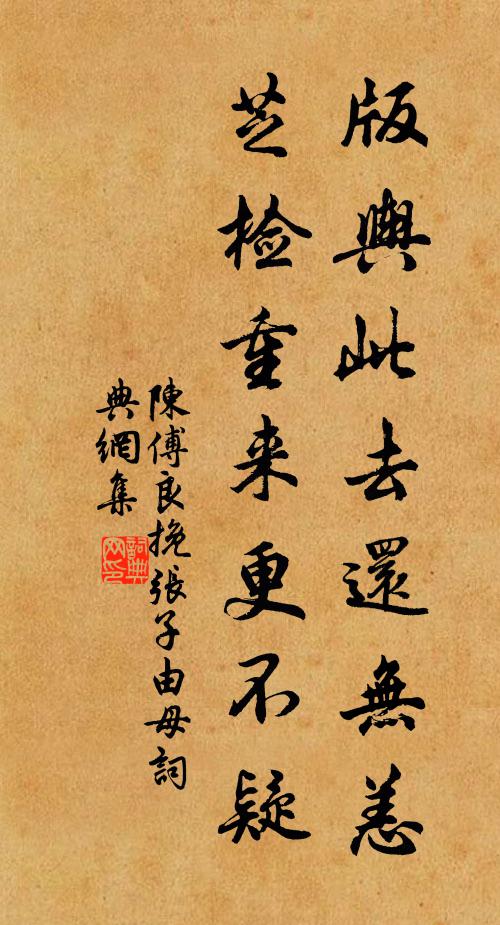 版輿此去還無恙
芝检重来更不疑
陳傅良挽張子由母詞
典網集
詞典网印